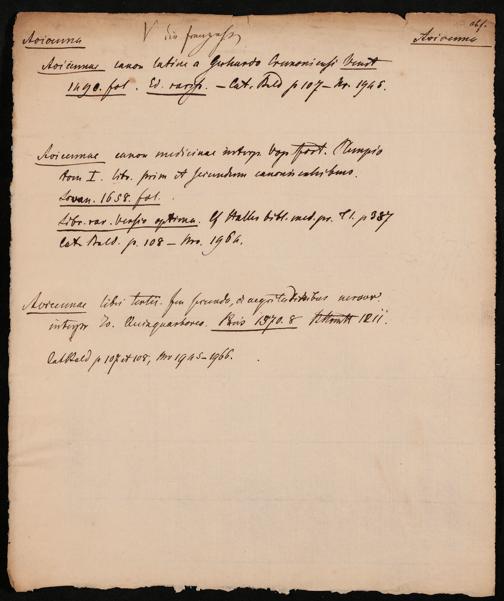 Avicenna
Avicenna
Avicennae canon latine a Gerhardo Cremonensi Venet
1490. fol. Ed. rariss. – Cat. Bald p 107 – Nr. 1945.
Avicennae canon medicinae interpr. Vop. Plempio
tom I. libr. prim et secundum canonis exhibens.
Lovan. 1658. fol.
Libr. rar. versio optima. Cf Haller bibl. med. pr. T 1. p 387
Cat. Bald. p. 108 – Nro. 1964.
Avicennae libri tertii. fen secunda, de aegritudinibus nervor.
interpr Jo. Quinquarboreo. Paris 1570. 8
Cat Bald p 107 et 108, Nro 1945–1966.